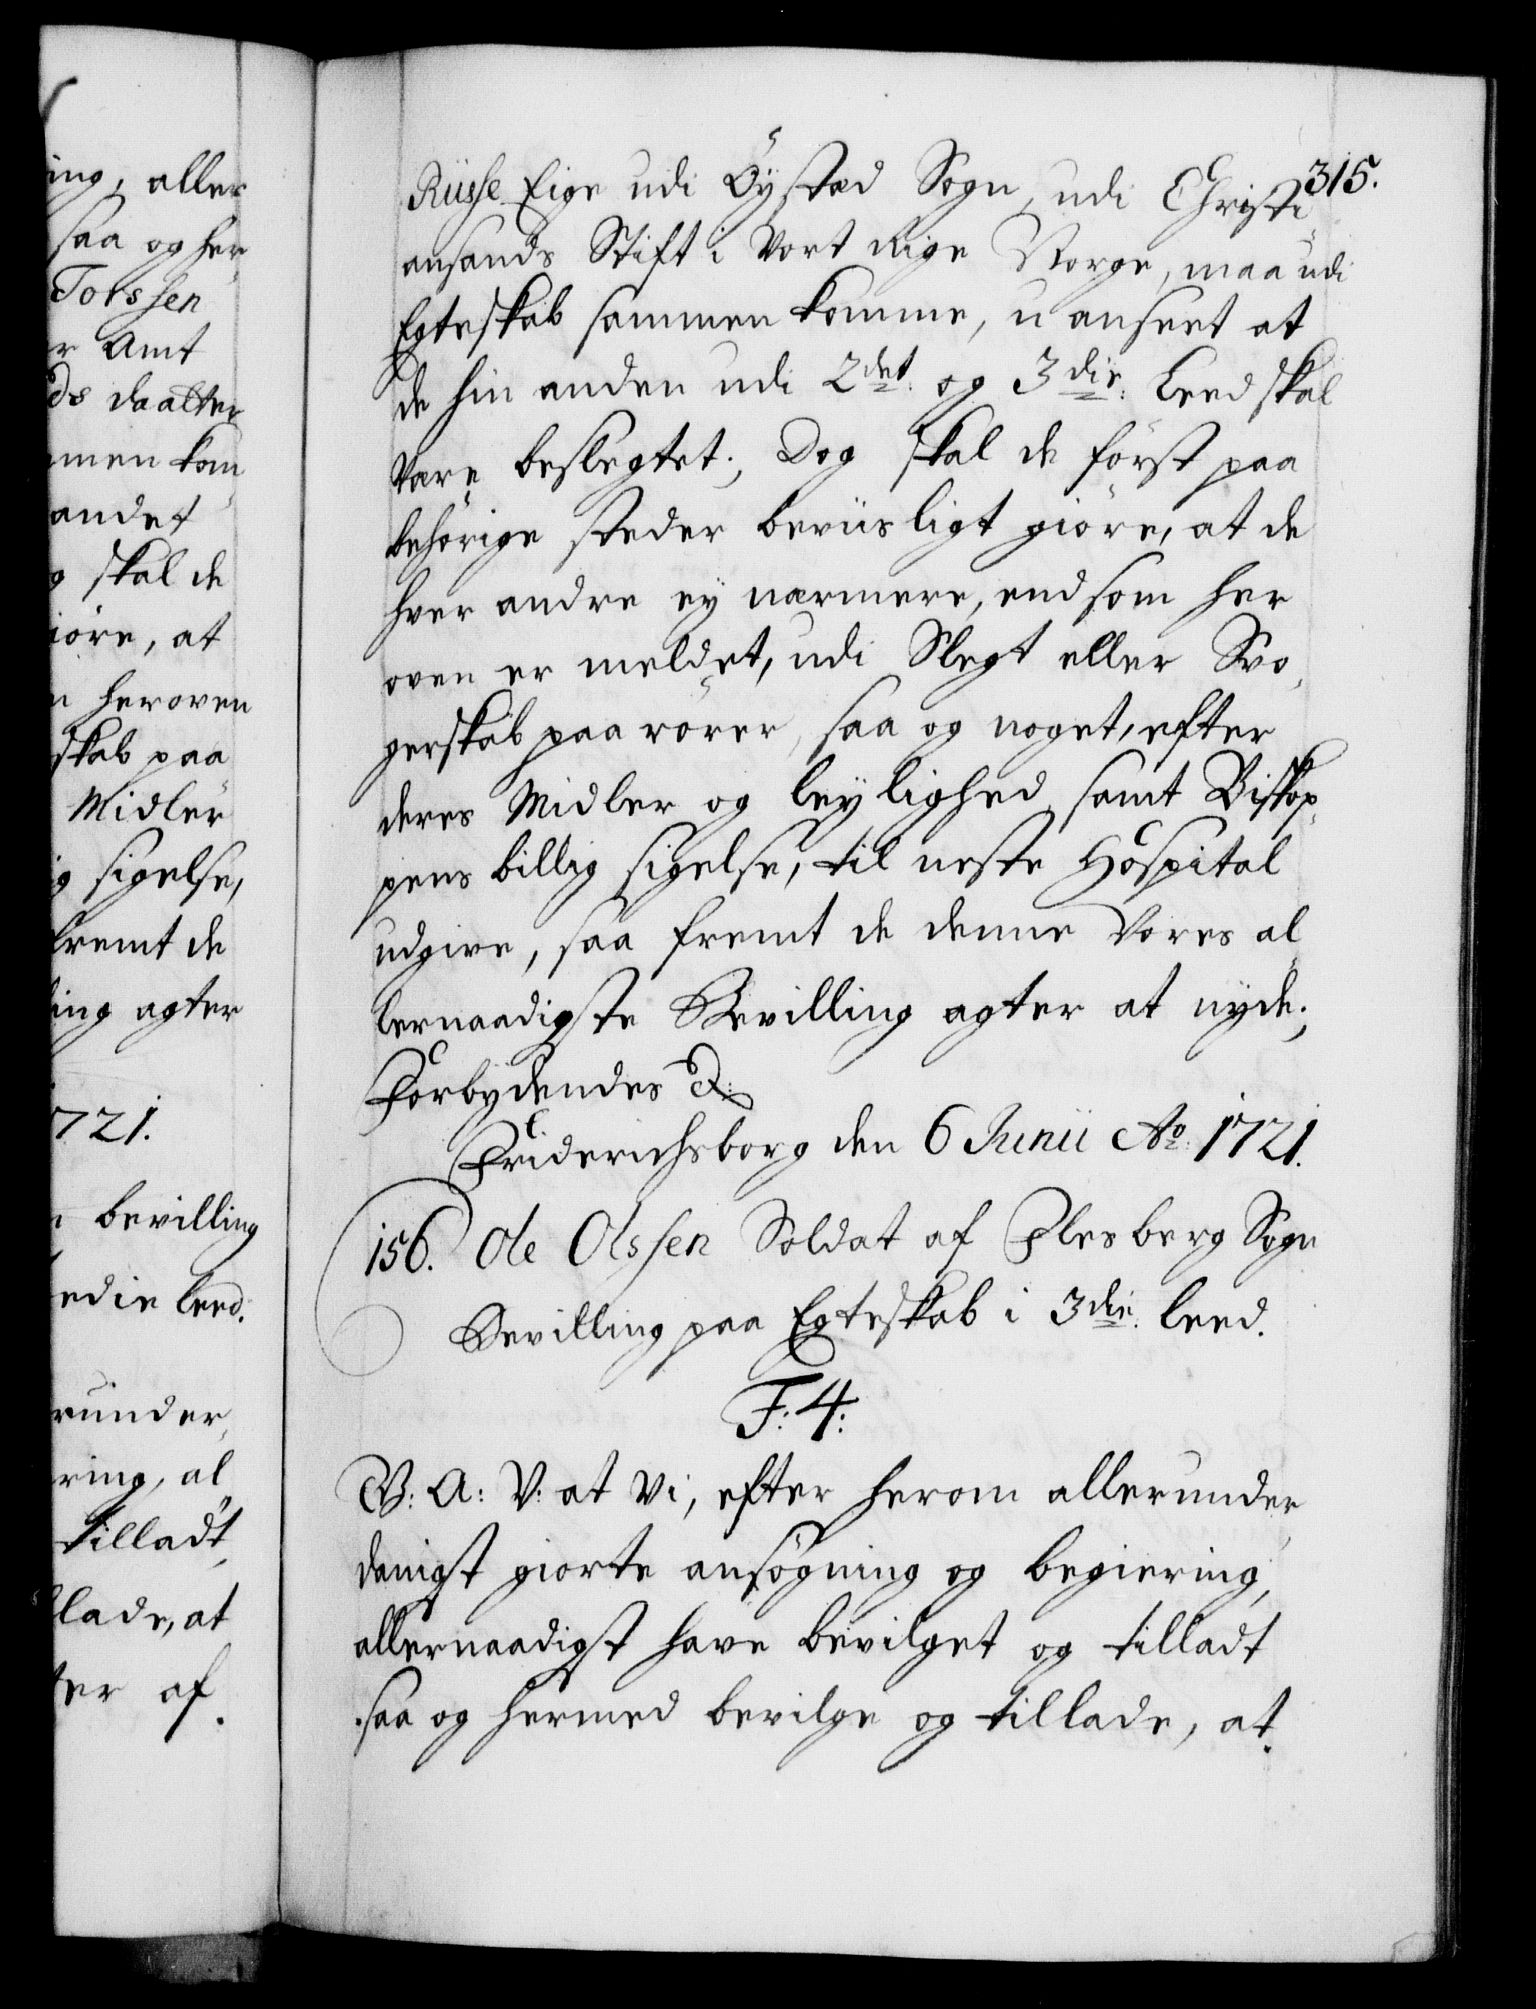 ing, aller
saa og her
Torssen
r Amt
ds daatter
men kom
andet
g skal de
iöre, at
n heroven
skab paa
Midler
ig sigelse,
fremt de
ling agter
1721.
n bevilling
edie leed.
runder,
ring, al
tilladt,
llade, at
ter af
315.
Rüsse Eige udi Öysted Sogn, udi Christi
ansands Stift i Vort Rige Norge, maa udi
Egteskab sammen komme, u anseet at
de hin anden udi 2det og 3die Leed skal
være beslegtet; Dog skal de först paa
behörige steder beviisligt giöre, at de
hver andre ey nærmere, end som her
oven er meldet, udi Slegt eller Svo
gerskab paa rörer, saa og noget, efter
deres Midler og leylighed samt Biskop
pens billig sigelse, til neste Hospital
udgive, saa fremt de denne Vores al
lernaadigste Bevilling agter at nyde;
Forbydendes &:
Friderichsborg den 6 Junii Ao 1721.
156. Ole Olssen Soldat af Flesberg Sogn
Bevilling paa Egteskab i 3die leed.
F: 4:
G. V: A: V: at Vi, efter herom allerunder
danigst giorte ansögning og begiering,
allernaadigst have bevilget og tilladt
saa og hermed bevilge og tillade, at